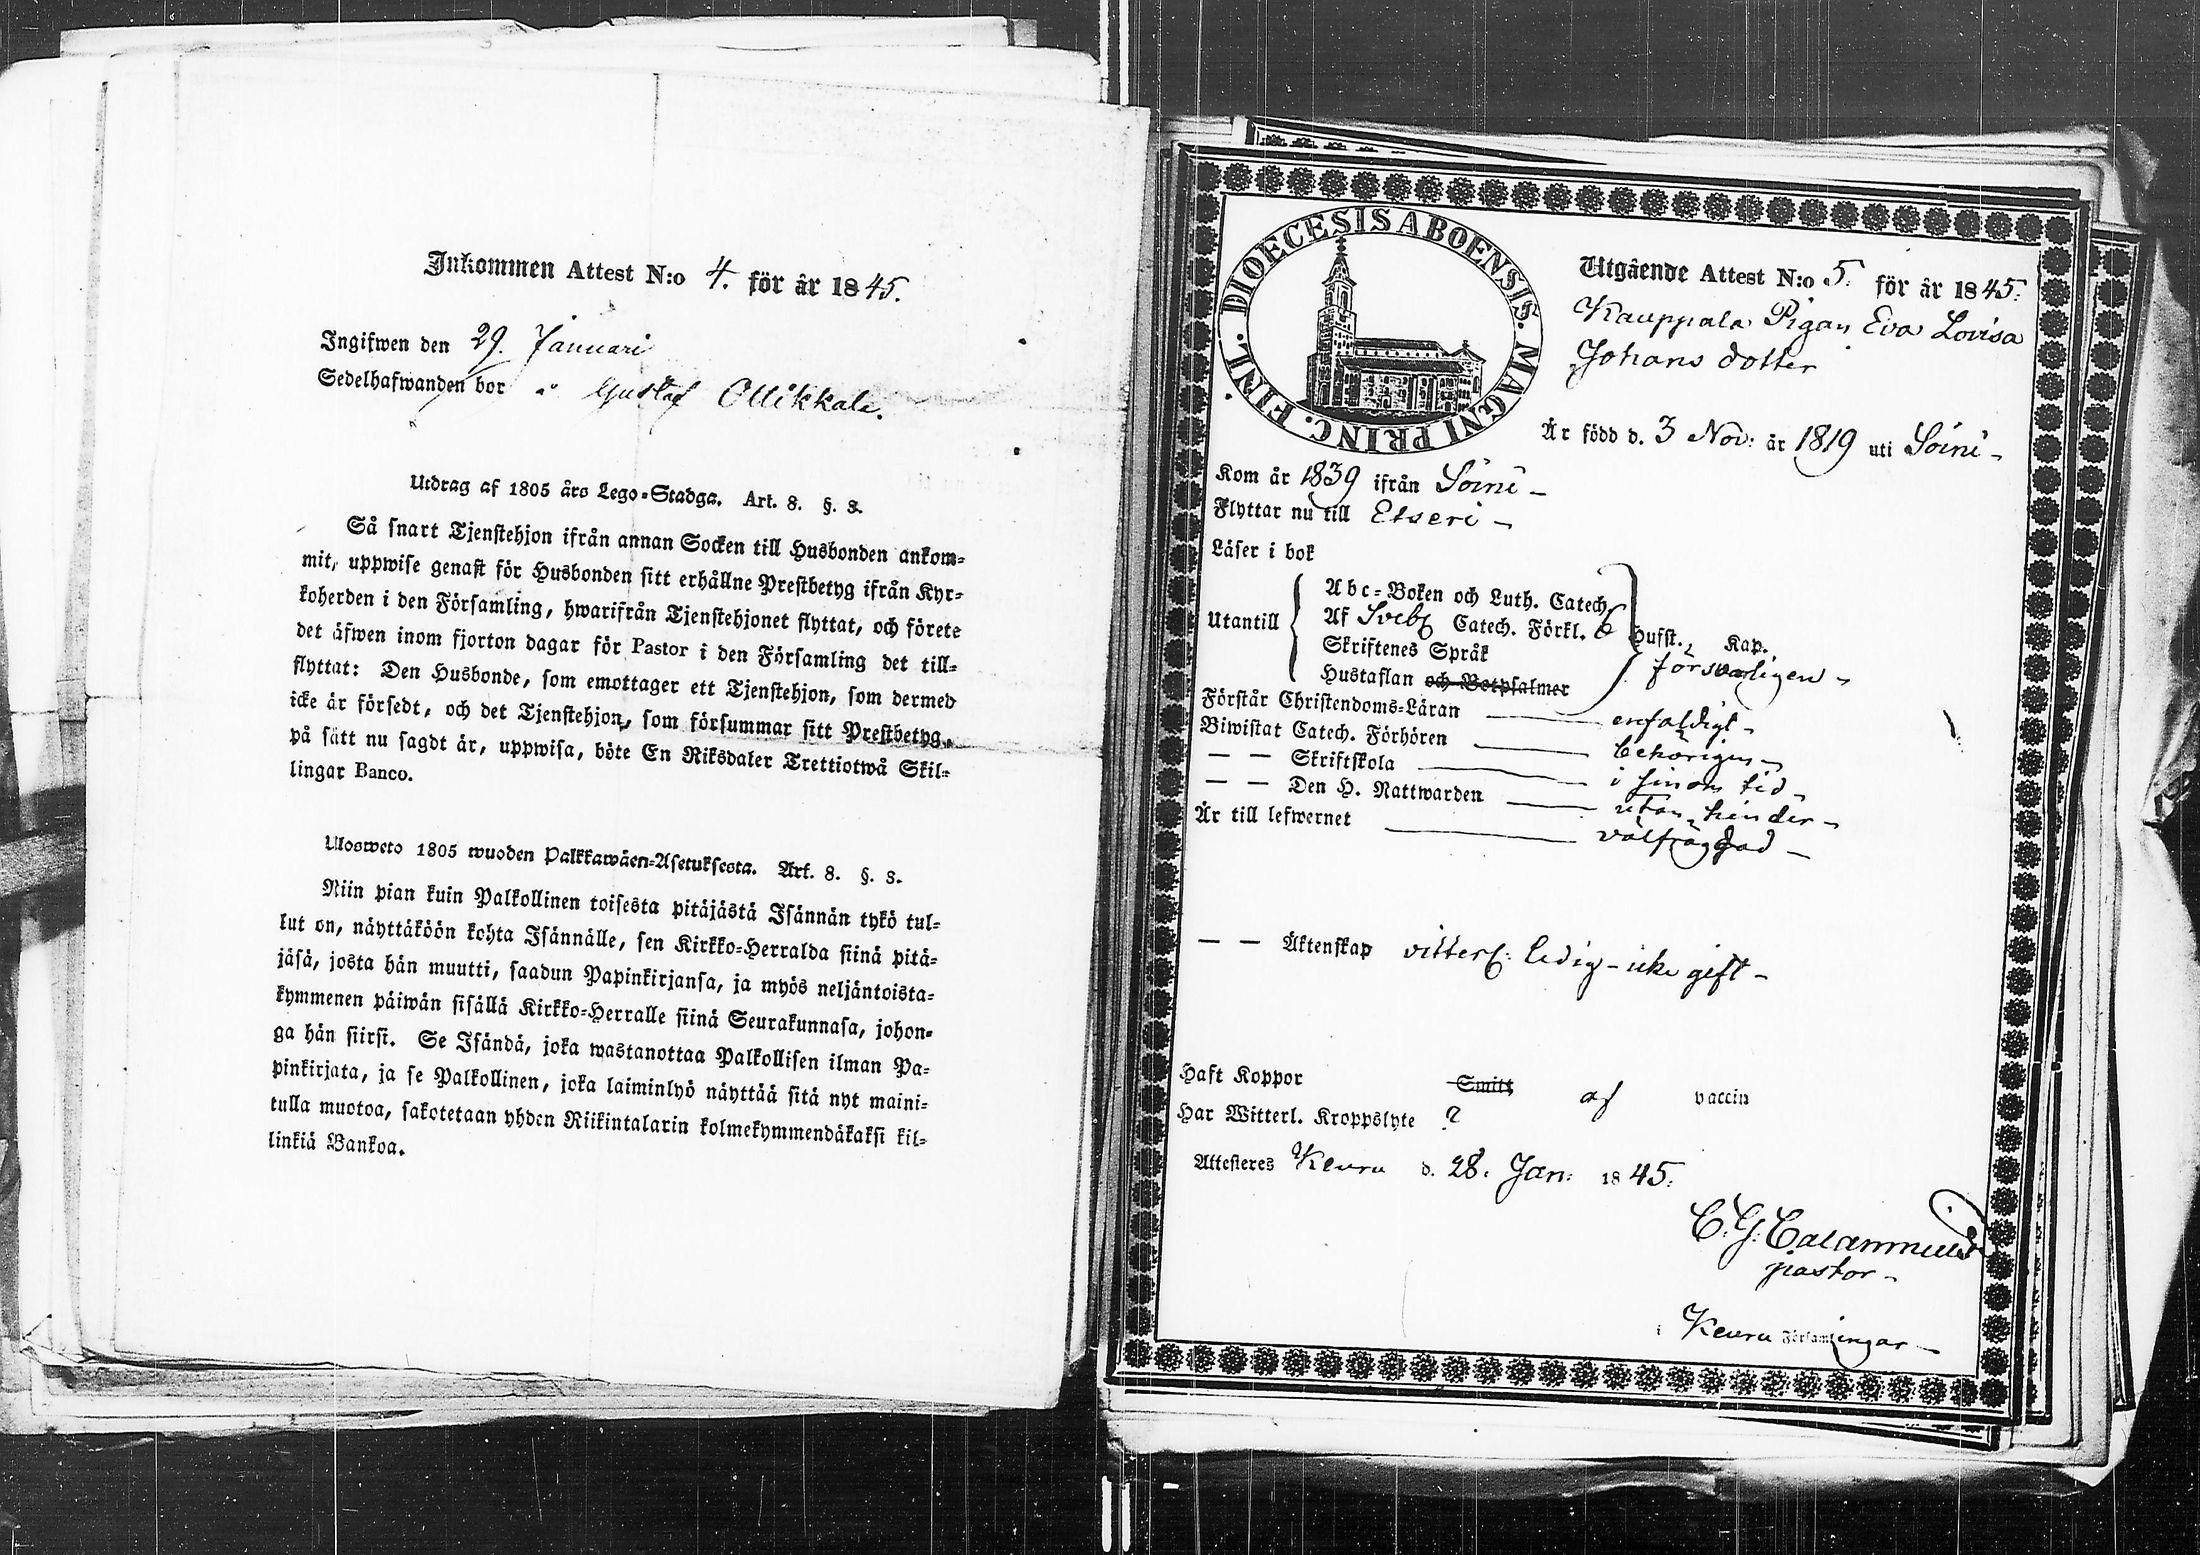 Inkommen Attest N:o 4. för år 1845.
Ingifwen den 29. Januari
Sedelhafwanden bor å Gustaf Ollikkala.
Utdrag af 1805 års Lego-Stadga. Art. 8. §. 8.
Så snart Tjenstehjon ifrån annan Socken till Husbonden ankom-
mit, uppwise genast för Husbonden sitt erhållne Prestbetyg ifrån Kyr-
koherden i den Församling, hwarifrån Tjenstehjonet flyttat, och förete
det äfwen inom fjorton dagar för Pastor i den Församling det till-
flyttat: Den Husbonde, som emottager ett Tjenstehjon, som dermed
icke är försedt, och det Tjenstehjon, som försummar sitt Prestbetyg,
på sätt nu sagdt är, uppwisa, böte En Riksdaler Trettiotwå Skil-
lingar Banco.
Ulosweto 1805 wuoden Palkkawäen-Asetuksesta. Art. 8. §. 8.
Niin pian kuin Palkollinen toisesta pitäjästä Isännän tykö tul-
lut on, näyttäköön kohta Isännälle, sen Kirkko-Herralda siinä pitä-
jäsä, josta hän muutti, saadun Papinkirjansa, ja myös neljäntoista-
kymmenen päiwän sisällä Kirkko-Herralle siinä Seurakunnasa, johon-
ga hän siirsi. Se Isändä, joka wastanottaa Palkollisen ilman Pa-
pinkirjata, ja se Palkollinen, joka laiminlyö näyttää sitä nyt maini-
tulla muotoa, sakotetaan yhden Riikintalarin kolmekymmendäkaksi kil-
linkiä Bankoa.
DIOECESIS ABOENSIS. MAGNI PRINC. FINL.
Utgående Attest N:o 5. för år 1845.
Kauppala Pigan Eva Lovisa
Johans dotter
Är född d. 3 Nov: år 1819 uti Soini -
Kom år 1839 ifrån Soini -
Flyttar nu till Etseri -
Läser i bok
Utantill
Abc-Boken och Luth. Catech.
Af Sveb. Catech. Förkl.
Hufst., Kap.
Skriftenes Språk
försvarligen -
Hustaflan och Botpsalmer
Förstår Christendoms-Läran enfaldigt -
Biwistat Catech. Förhören behörigen -
— — Skriftskola i sinom tid -
— — Den H. Nattwarden utan hinder -
Är till lefwernet välfrägdad -
— — Äktenskap vitterl: ledig - icke gift -
Haft Koppor Smitt af vaccin
Har Witterl. Kroppslyte ?
Attesteres Keuru d. 28. Jan: 1845.
C. G. Calamnius
pastor -
i Keuru Församlingar -